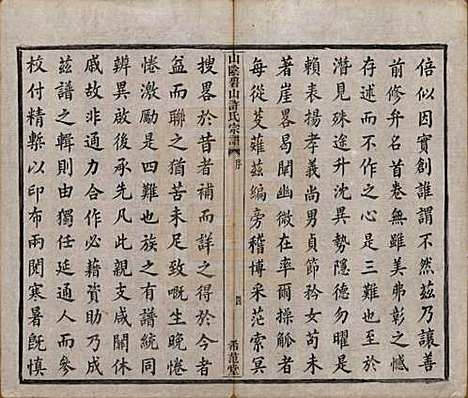 倍似因實創誰謂不然茲乃讓善
前修弁名首卷無雖美弗彰之憾
存述而不作之心三難也至於
潛見殊途升沈異勢隱德勿曜是
賴表揚孝義尚男貞節矜女苟未
著崖畧曷闡幽微在率爾操觚者
每從芟薙茲編旁稽博采茫索冥
山陰碧山許氏宗譜
序
希范堂
搜畧於昔者補而詳之得於今者
益而聯之猶苦未足致嘅生晚惓
惓激勵是四難也族之有譜統同
辨異啟後承先凡此親支咸關休
戚故非通力合作必藉資助乃成
茲譜之輯前由獨任延通人而參
校付精槧以印布兩閱寒暑既慎